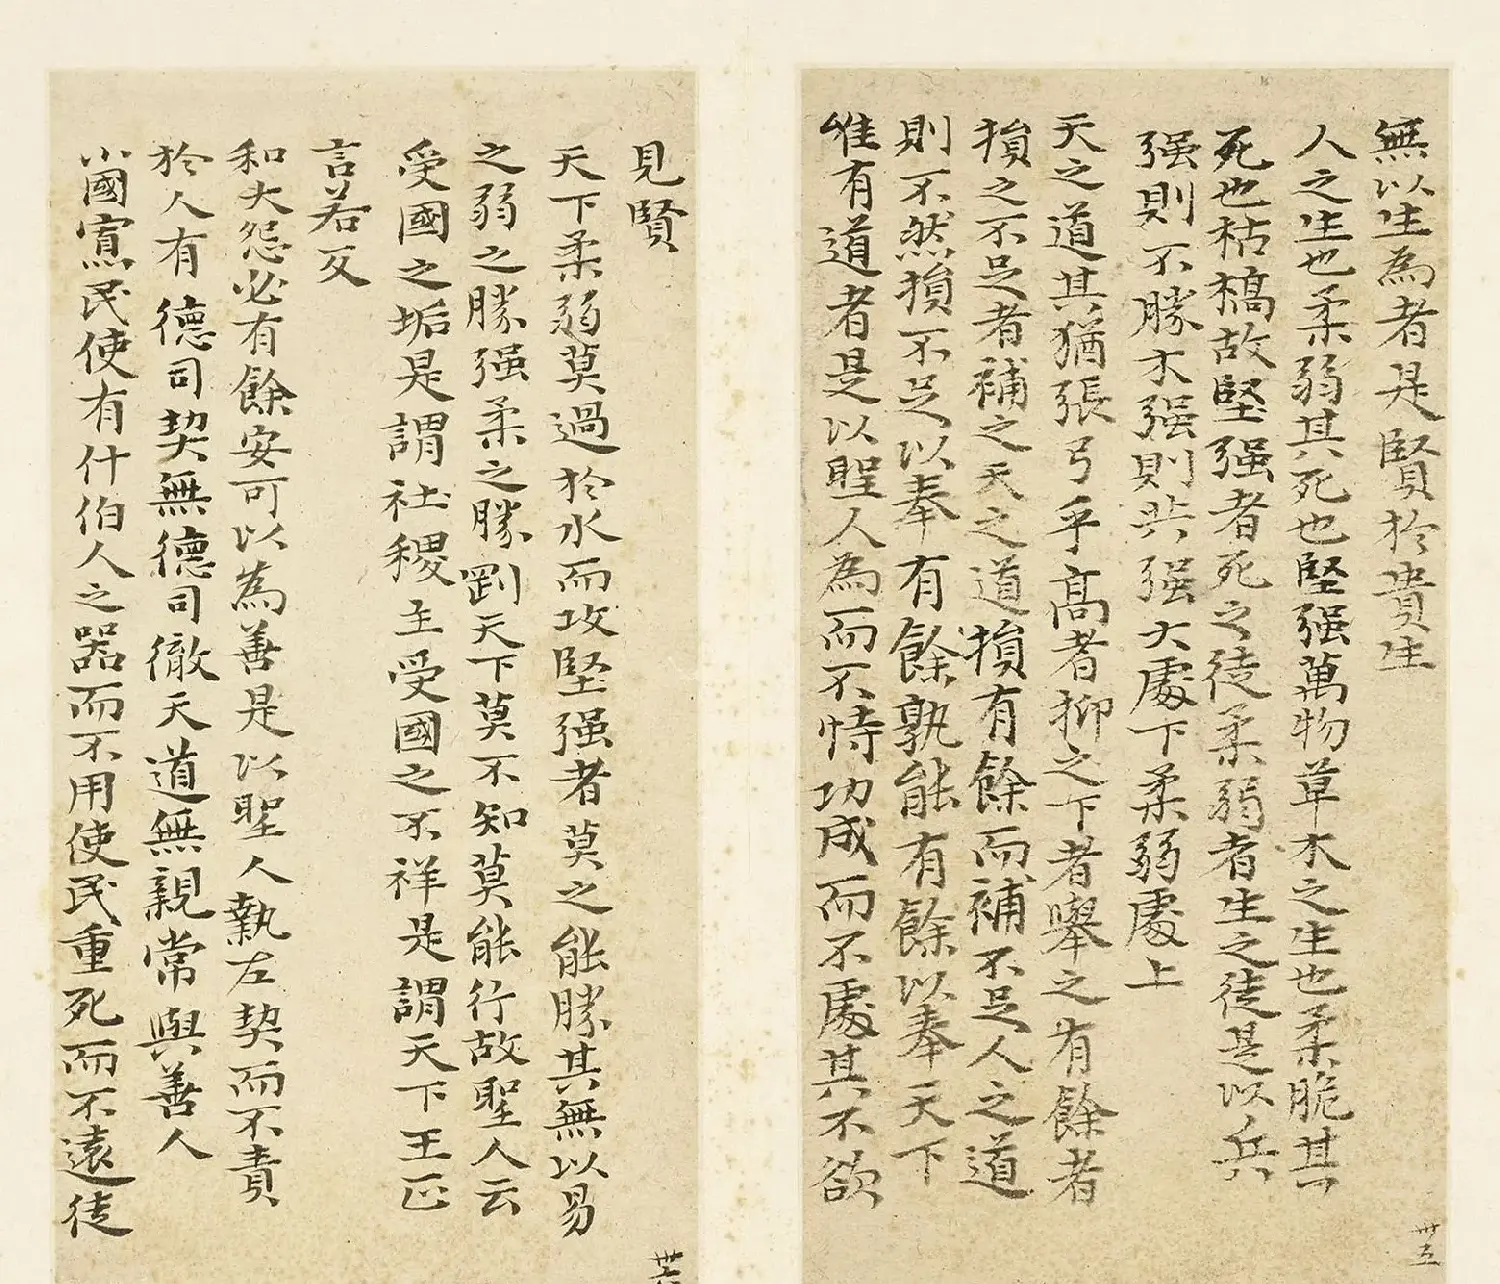 無以生為者是賢於貴生
人之生也柔弱其死也堅强萬物草木之生也柔脆其
死也枯槁故堅强者死之徒柔弱者生之徒是以兵
强則不勝木强則共强大處下柔弱處上
天之道其猶張弓乎高者抑之下者舉之有餘者
損之不足者補之天之道損有餘而補不足人之道
則不然損不足以奉有餘孰能有餘以奉天下
唯有道者是以聖人為而不恃功成而不處其不欲
卅五
見賢
天下柔弱莫過於水而攻堅强者莫之能勝其無以易
之弱之勝强柔之勝剛天下莫不知莫能行故聖人云
受國之垢是謂社稷主受國之不祥是謂天下王正
言若反
和大怨必有餘安可以為善是以聖人執左契而不責
於人有德司契無德司徹天道無親常與善人
小國寡民使有什伯人之器而不用使民重死而不遠徙